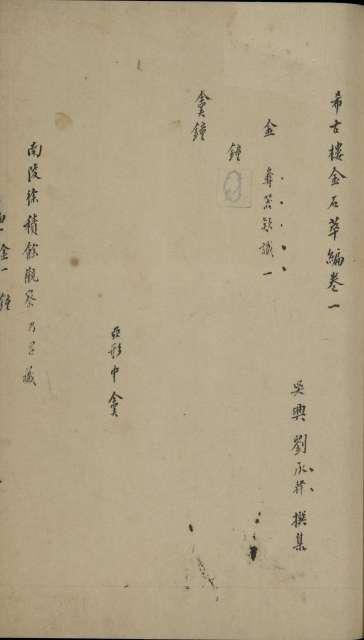 希古樓金石萃編卷一
吳興劉承幹撰集
金 彝器款識一
鐘
鐘
亞形中
南陵徐積餘觀察乃昌藏
金一 鐘